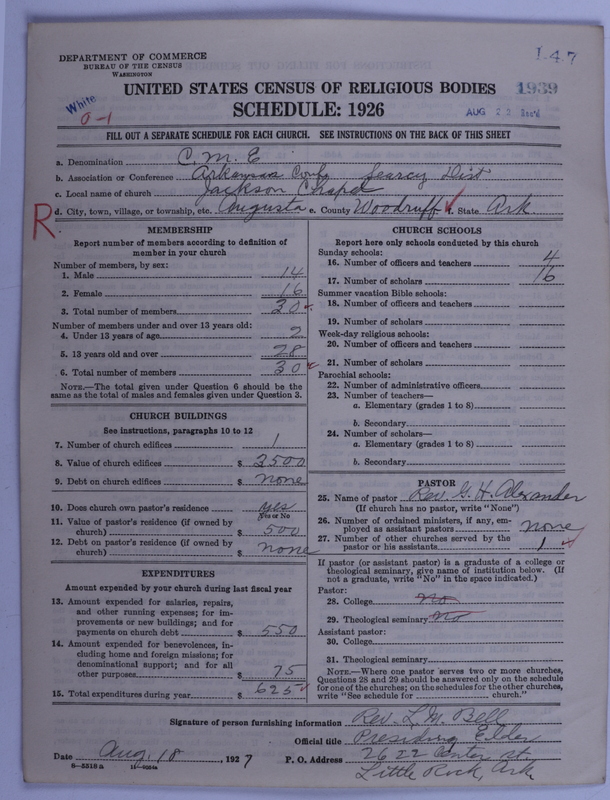 1.47
DEPARTMENT OF COMMERCE
BUREAU OF THE CENSUS
WASHINGTON
UNITED STATES CENSUS OF RELIGIOUS BODIES 1939
White
0-1
SCHEDULE: 1926
AUG 22 Rec'd
FILL OUT A SEPARATE SCHEDULE FOR EACH CHURCH. SEE INSTRUCTIONS ON THE BACK OF THIS SHEET
a. Denomination C. M. E
b. Association or Conference Arkansas Conf. Searcy Dist
c. Local name of church Jackson Chapel
R d. City, town, village, or township, etc. Augusta e. County Woodruff f. State Ark
MEMBERSHIP
Report number of members according to definition of
member in your church
Number of members, by sex:
1. Male 14
2. Female 16
3. Total number of members 30
Number of members under and over 13 years old:
4. Under 13 years of age 2
5. 13 years old and over 28
6. Total number of members 30
NOTE.—The total given under Question 6 should be the
same as the total of males and females given under Question 3.
CHURCH BUILDINGS
See instructions, paragraphs 10 to 12
7. Number of church edifices 1
8. Value of church edifices $ 3500
9. Debt on church edifices $ none
10. Does church own pastor's residence yes
Yes or No
11. Value of pastor's residence (if owned by
church) $ 500
12. Debt on pastor's residence (if owned by
church) $ none
EXPENDITURES
Amount expended by your church during last fiscal year
13. Amount expended for salaries, repairs,
and other running expenses; for im-
provements or new buildings; and for
payments on church debt $ 550
14. Amount expended for benevolences, in-
cluding home and foreign missions; for
denominational support; and for all
other purposes $ 75
15. Total expenditures during year $ 625
CHURCH SCHOOLS
Report here only schools conducted by this church
Sunday schools:
16. Number of officers and teachers 4
17. Number of scholars 16
Summer vacation Bible schools:
18. Number of officers and teachers
19. Number of scholars
Week-day religious schools:
20. Number of officers and teachers
21. Number of scholars
Parochial schools:
22. Number of administrative officers
23. Number of teachers—
a. Elementary (grades 1 to 8)
b. Secondary
24. Number of scholars—
a. Elementary (grades 1 to 8)
b. Secondary
PASTOR
25. Name of pastor Rev. G. H. Alexander
(If church has no pastor, write "None")
26. Number of ordained ministers, if any, em-
ployed as assistant pastors none
27. Number of other churches served by the
pastor or his assistants 1
If pastor (or assistant pastor) is a graduate of a college or
theological seminary, give name of institution below. (If
not a graduate, write "No" in the space indicated.)
Pastor:
28. College No
29. Theological seminary No
Assistant pastor:
30. College
31. Theological seminary
NOTE.—Where one pastor serves two or more churches,
Questions 28 and 29 should be answered only on the schedule
for one of the churches; on the schedules for the other churches,
write "See schedule for church."
Signature of person furnishing information Rev. L. M. Bell
Official title Presiding Elder
Date Aug. 18, 1927 P. O. Address 2622 Center st.
8—5318a 11—9034a Little Rock, Ark